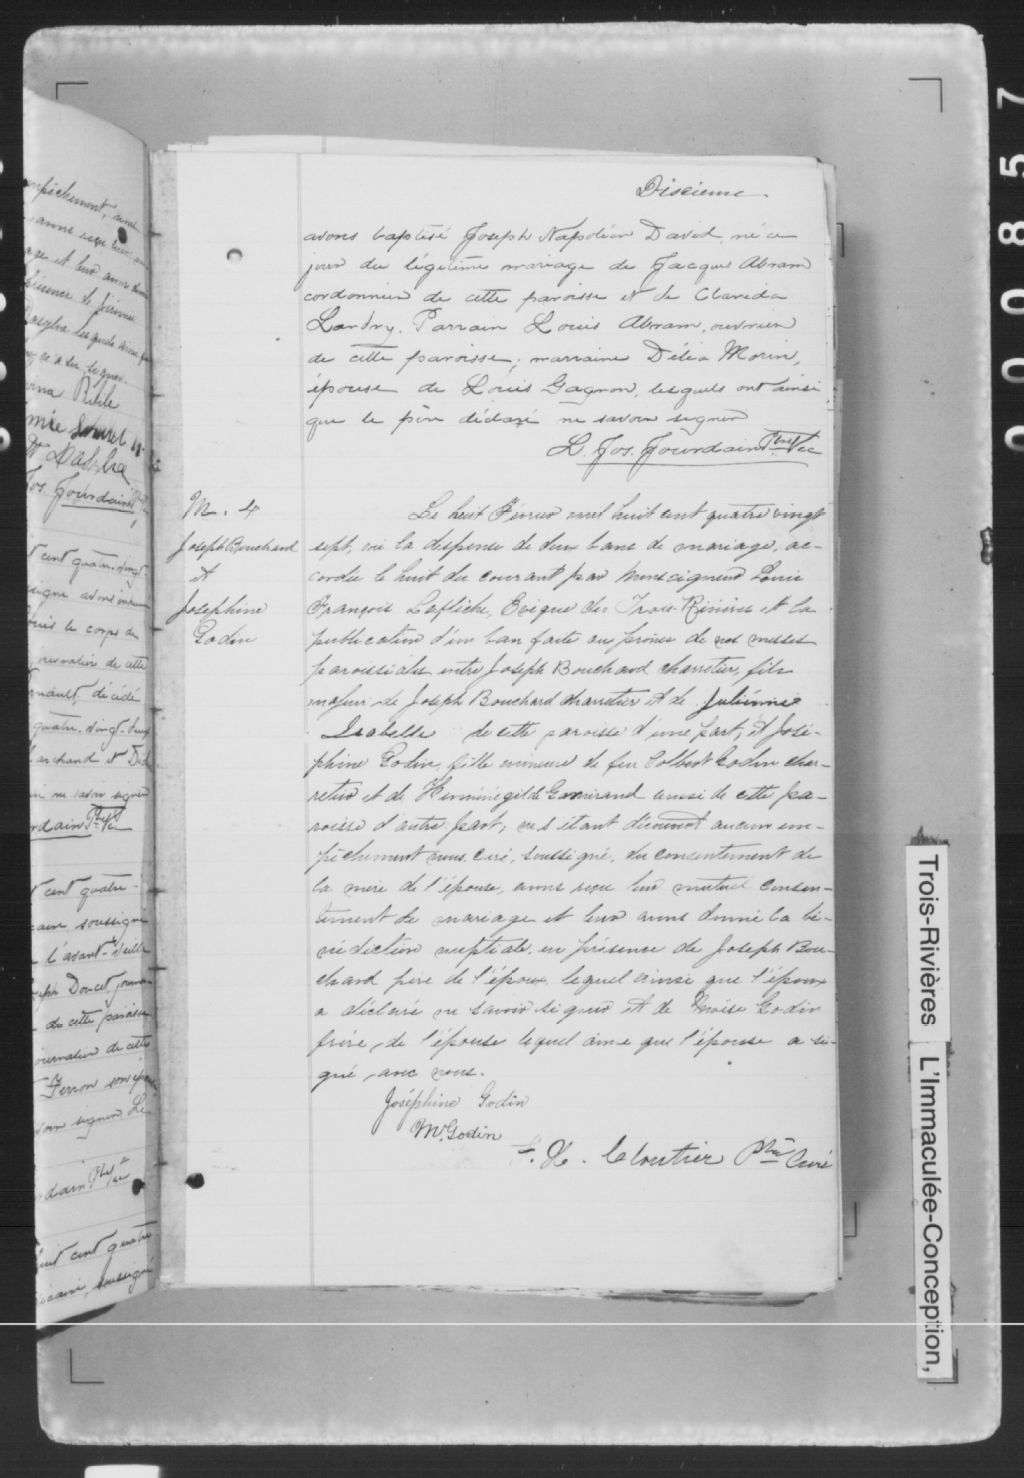 Dixieme
avons baptisé Joseph Napoléon David, né ce
jour du légitime mariage de Jacques Abram
cordonnier de cette paroisse et de Clarida
Landry. Parrain Louis Abram, ouvrier
de cette paroisse; marraine Délia Morin,
épouse de Louis Gagnon, lesquels ont ainsi
que le père déclaré ne savoir signer
L. Jos. Jourdain Ptre Vic
M. 4
Joseph Bouchard
et
Josephine
Godin
Le huit Février mil huit cent quatre vingt
sept, vu la dispense de deux bans de mariage, ac-
cordée le huit du courant par Monseigneur Louis
François Laflèche, Evêque des Trois-Rivières et la
publication d'un ban faite au prône de nos messes
paroissiales entre Joseph Bouchard charretier, fils
majeur de Joseph Bouchard charretier et de Julienne
Isabelle de cette paroisse d'une part; et José-
phine Godin, fille mineure de feu Colbert Godin char-
retier et de Herminégilde aussi de cette pa-
roisse d'autre part; ne s'étant découvert aucun em-
pêchement nous, curé, soussigné, du consentement de
la mère de l'épouse, avons reçu leur mutuel consen-
tement de mariage et leur avons donné la bé-
nédiction nuptiale en présence de Joseph Bou-
chard père de l'époux lequel ainsi que l'époux
a déclaré ne savoir signer et de Godin
frère de l'épouse lequel ainsi que l'épouse a si-
gné avec nous.
Joséphine Godin
M. Godin
F. X. Cloutier Ptre Curé
empêchement, nous
avons reçu leur
présence de
Ptre Vic
Jos. Jourdain
cent quatre-vingt
signé avons inhumé
le corps de
journalier de cette
décédé
quatre-vingt-
Marchand et
ne savoir signer
Jourdain Ptre Vic
cent quatre-
vicaire soussigné
l'avant-veille
Joseph Doucet,
de cette paroisse
journalier de cette
Ferron son
savoir signer. Le
Jourdain Ptre Vic
huit cent quatre
vicaire, soussigné
000857
Trois-Rivières L'Immaculée-Conception,